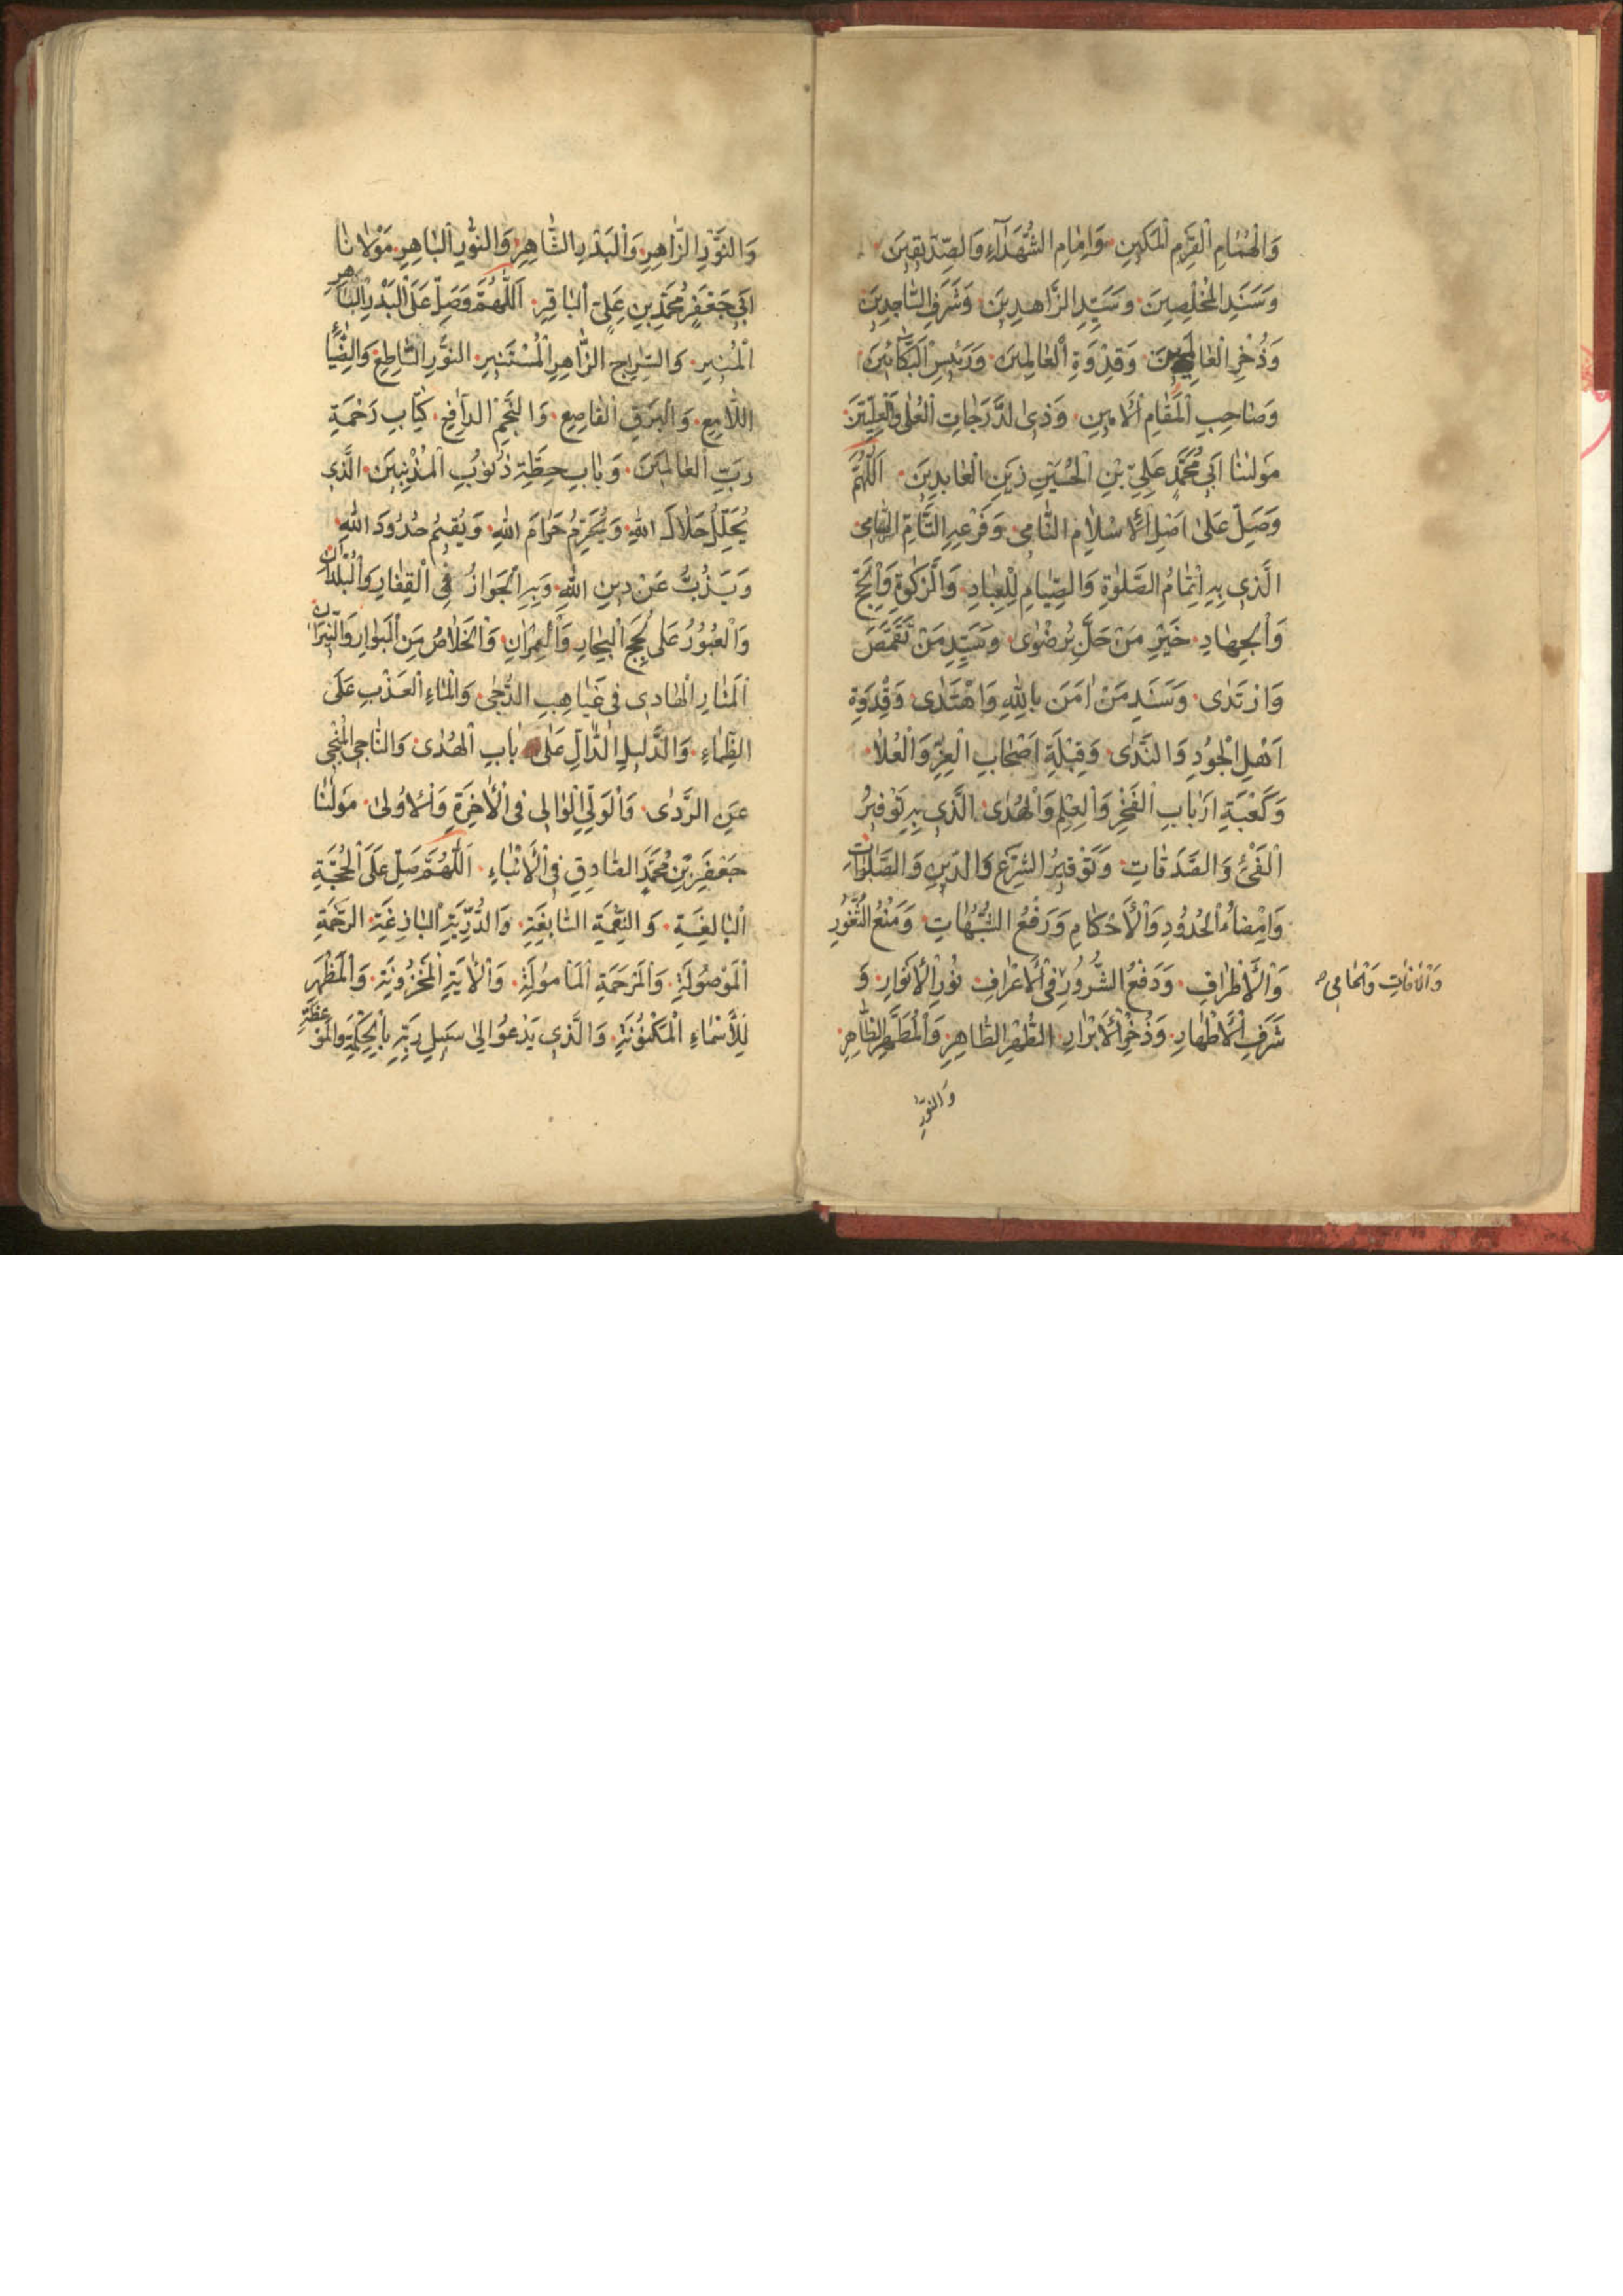 وَالْهُمَامِ الْقَرْمِ الْمَكِينِ وَاِمَامِ الشُّهَدَآءِ وَالصِّدِّيقِينَ
وَسَنَدِ الْمُخْلِصِينَ وَسَيِّدِ الزَّاهِدِينَ وَشَرَفِ السَّاجِدِينَ
وَذُخْرِ وَقِدْوَةِ الْعَالِمِينَ وَرَئِيسِ الْبَكَّائِينَ
وَصَاحِبِ الْمَقَامِ الْاَمِينِ وَذِي الدَّرَجَاتِ الْعُلَى وَالْعِلِّيِّينَ
مَوْلٰنَا اَبِي مُحَمَّدٍ عَلِيِّ بْنِ الْحُسَيْنِ زَيْنِ الْعَابِدِينَ اَللّٰهُمَّ
وَصَلِّ عَلَى اَصْلِ الْاِسْلَامِ النَّامِي وَفَرْعِهِ التَّامِّ
الَّذِي بِهِ اِتْمَامُ الصَّلٰوةِ وَالصِّيَامِ لِلْعِبَادِ وَالزَّكٰوةِ وَالْحَجِّ
وَالْجِهَادِ خَيْرِ مَنْ حَلَّ بِرَضْوٰى وَسَيِّدِ مَنْ تَقَمَّصَ
وَارْتَدٰى وَسَنَدِ مَنْ اٰمَنَ بِاللّٰهِ وَاهْتَدٰى وَقِدْوَةِ
اَهْلِ الْجُودِ وَالنَّدٰى وَقِبْلَةِ اَصْحَابِ الْعِزِّ وَالْعُلَا
وَكَعْبَةِ اَرْبَابِ الْفَخْرِ وَالْعِلْمِ وَالْهُدٰى الَّذِي بِهِ تَوْفِيرُ
الْفَيْءِ وَالصَّدَقَاتِ وَتَوْقِيرُ الشَّرْعِ وَالدِّينِ وَالصَّلَوَاتِ
وَاِمْضَاءُ الْحُدُودِ وَالْاَحْكَامِ وَرَفْعُ الشُّبُهَاتِ وَمَنْعُ الثُّغُورِ
وَالْاَطْرَافِ وَدَفْعُ الشُّرُورِ فِي الْاَعْرَافِ نُورِ الْاَنْوَارِ وَ
وَالْاٰفَاتِ وَالْحَامِي
شَرَفِ الْاَطْهَارِ وَذُخْرِ الْاَبْرَارِ الطُّهْرِ الطَّاهِرِ وَالْمُطَهَّرِ الظَّاهِرِ
وَالنَّوْرِ
وَالنَّوْرِ الزَّاهِرِ وَالْبَدْرِ الشَّاهِرِ وَالنُّورِ الْبَاهِرِ مَوْلَانَا
اَبِي جَعْفَرٍ مُحَمَّدِ بْنِ عَلِيٍّ الْبَاقِرِ اَللّٰهُمَّ وَصَلِّ عَلَى الْبَدْرِ الْبَاهِرِ
الْمُنِيرِ وَالسِّرَاجِ الزَّاهِرِ الْمُسْتَنِيرِ النُّورِ السَّاطِعِ وَالضِّيَاءِ
اللَّامِعِ وَالْبَرْقِ الْقَاصِعِ وَالنَّجْمِ الدَّافِعِ كِتَابِ رَحْمَةِ
رَبِّ الْعَالَمِينَ وَبَابِ حِطَّةِ ذُنُوبِ الْمُذْنِبِينَ الَّذِي
يُحَلِّلُ حَلَالَ اللّٰهِ وَيُحَرِّمُ حَرَامَ اللّٰهِ وَيُقِيمُ حُدُودَ اللّٰهِ
وَيَذُبُّ عَنْ دِينِ اللّٰهِ وَبِهِ الْجَوَازُ فِي الْقِفَارِ وَالْبُلْدَانِ
وَالْعُبُورُ عَلَى لُجَجِ الْبِحَارِ وَالْعِمْرَانِ وَالْخَلَاصُ مِنَ الْبَوَارِ وَالنِّيرَانِ
اَلْمَنَارِ الْهَادِي فِي غَيَاهِبِ الدُّجٰى وَالْمَاءِ الْعَذْبِ عَلَى
الظَّمَاءِ وَالدَّلِيلِ الدَّالِّ عَلَى بَابِ الْهُدٰى وَالنَّاجِي الْمُنْجِي
عَنِ الرَّدٰى وَالْوَلِيِّ الْوَالِي فِي الْاٰخِرَةِ وَالْاُولٰى مَوْلٰنَا
جَعْفَرِ بْنِ مُحَمَّدٍ الصَّادِقِ فِي الْاَنْبَاءِ اَللّٰهُمَّ صَلِّ عَلَى الْحُجَّةِ
الْبَالِغَةِ وَالنِّعْمَةِ السَّابِغَةِ وَالدُّرِّيَّةِ الْبَازِغَةِ الرَّحْمَةِ
الْمَوْصُولَةِ وَالْمَرْحَمَةِ الْمَأْمُولَةِ وَالْاٰيَةِ الْمَخْزُونَةِ وَالْمَظْهَرِ
لِلْاَسْمَاءِ الْمَكْنُونَةِ وَالَّذِي يَدْعُوا اِلٰى سَبِيلِ رَبِّهِ بِالْحِكْمَةِ وَالْمَوْعِظَةِ